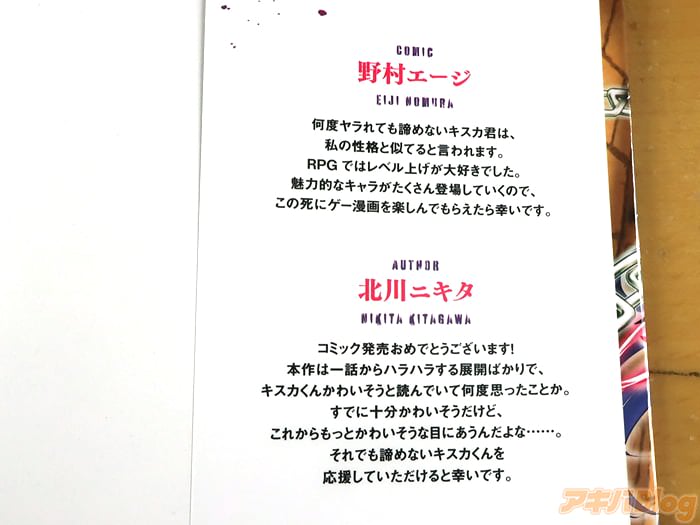 COMIC
野村エージ
EIJI NOMURA
何度ヤラれても諦めないキスカ君は、
私の性格と似てると言われます。
RPGではレベル上げが大好きでした。
魅力的なキャラがたくさん登場していくので、
この死にゲー漫画を楽しんでもらえたら幸いです。
AUTHOR
北川ニキタ
NIKITA KITAGAWA
コミック発売おめでとうございます!
本作は一話からハラハラする展開ばかりで、
キスカくんかわいそうと読んでいて何度思ったことか。
すでに十分かわいそうだけど、
これからもっとかわいそうな目にあうんだよな……。
それでも諦めないキスカくんを
応援していただけると幸いです。
アキバBlog